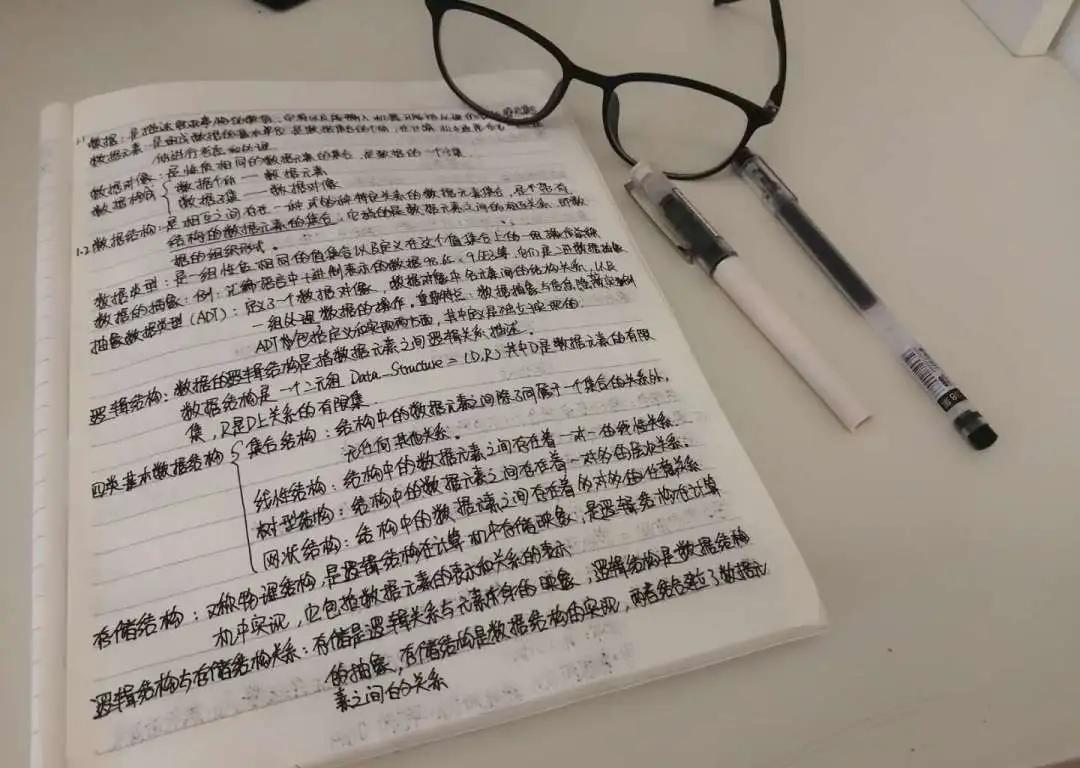 1.1 数据：是描述客观事物的数值、字符以及能输入机器且能被处理的
数据元素：是组成数据的基本单位，是数据集合的个体，在计算机中
体进行考虑和处理
数据对像：是性质相同的数据元素的集合，是数据的一个子集.
数据构成 { 数据个体 — 数据元素
数据子集 — 数据对像
1.2 数据结构：是相互之间存在一种或多种特定关系的数据元素集合，是带有
结构的数据元素的集合，它指的是数据元素之间的相互关系，即数
据的组织形式。
数据类型：是一组性质相同的值集合以及定义在这个值集合上的一组操作
数据的抽象：例：汇编语言中十进制表示的数据98.65、9.6E3等，它们是二进数据抽象
抽象数据类型（ADT）：定义了一个数据对像、数据对像中各元素间的结构关系，以及
一组处理数据的操作，重要特点：数据抽象与信息隐蔽
ADT包括定义和实现两方面，其中定义是独立于实现的.
逻辑结构：数据的逻辑结构是指数据元素之间逻辑关系描述.
数据结构是一个二元组 Data_Structure = (D,R) 其中D是数据元素的有限
集，R是D上关系的有限集
四类基本数据结构 { 集合结构：结构中的数据元素之间除了同属于一个集合的关系外，
无任何其他关系。
线性结构：结构中的数据元素之间存在着一对一的线性关系.
树型结构：结构中的数据元素之间存在着一对多的层次关系.
网状结构：结构中的数据元素之间存在着多对多的任意关系
存储结构：又称物理结构，是逻辑结构在计算机中存储映象，是逻辑结构在计算
机中实现，它包括数据元素的表示和关系的表示
逻辑结构与存储结构关系：存储是逻辑关系与元素本身的映象，逻辑结构是数据结构
的抽象，存储结构是数据结构的实现，两者结合建立了数据元
素之间的关系